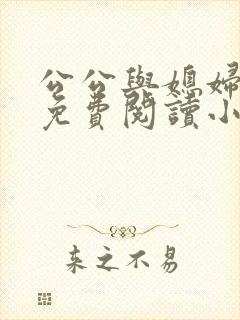 公公與媳婦
免費閱讀小
来之不易